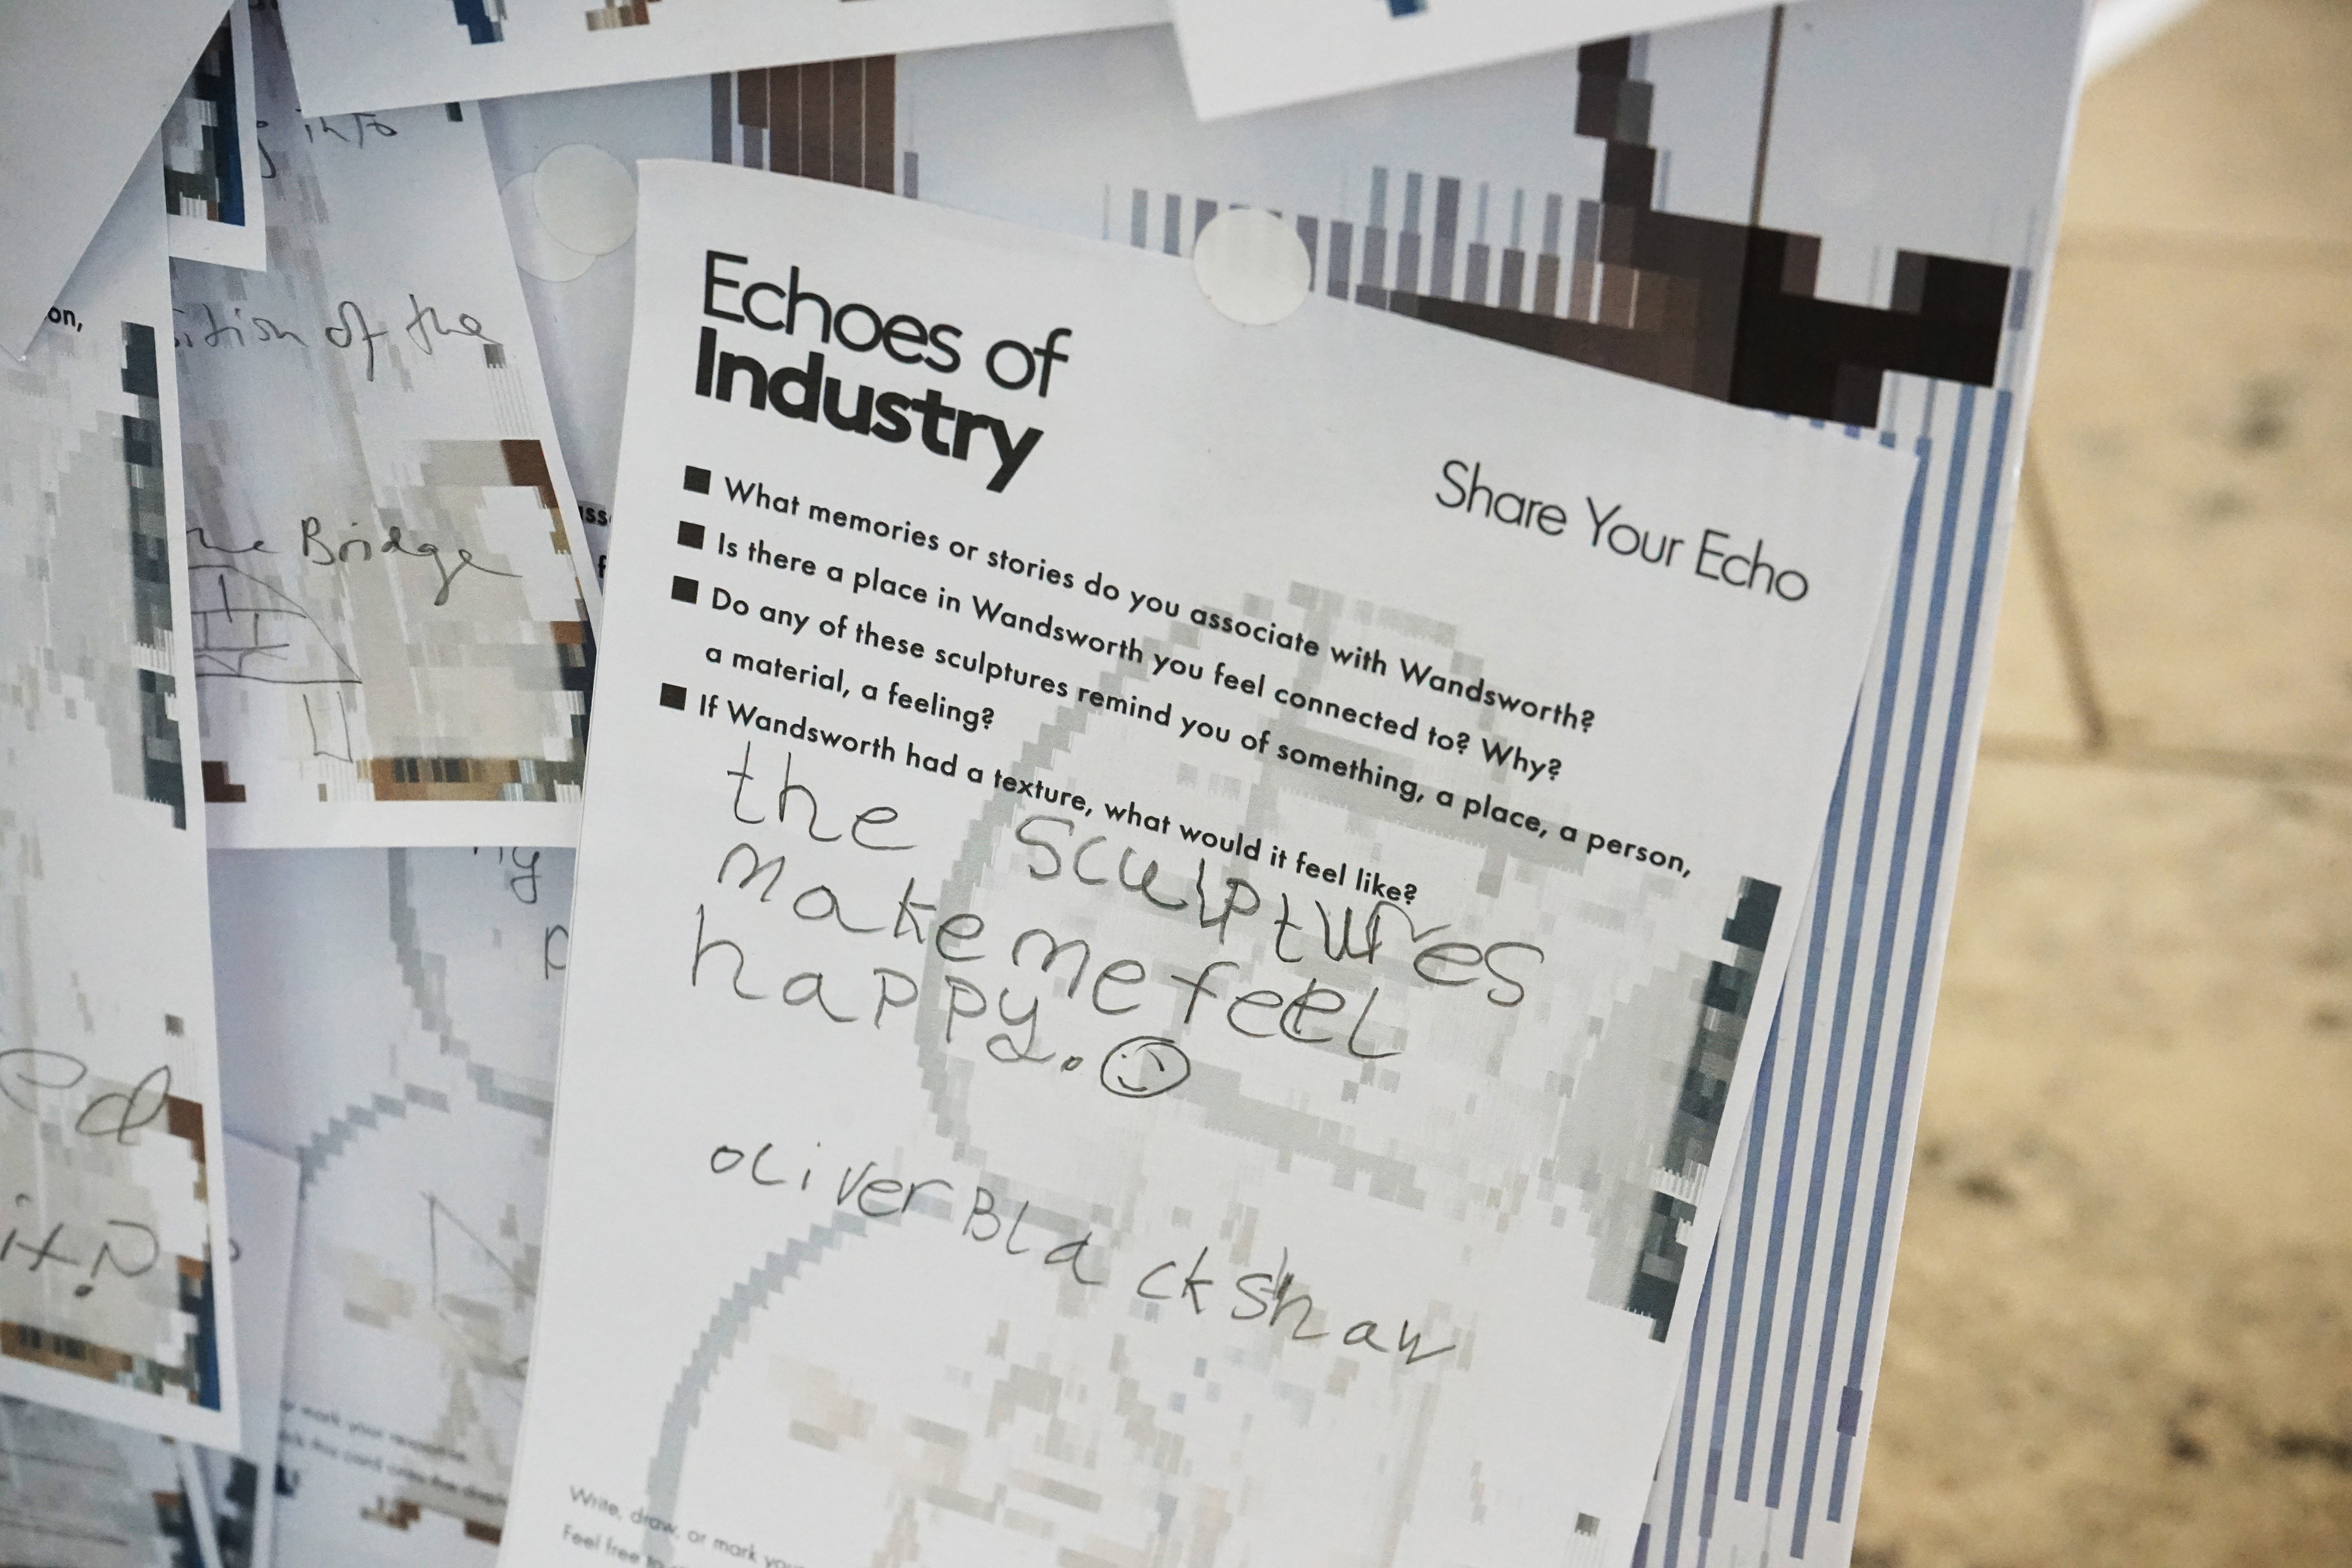 Echoes of
Industry
Share Your Echo
■ What memories or stories do you associate with Wandsworth?
■ Is there a place in Wandsworth you feel connected to? Why?
■ Do any of these sculptures remind you of something, a place, a person,
a material, a feeling?
■ If Wandsworth had a texture, what would it feel like?
the sculptures
make me feel
happy.
oliver Blackshaw
Write, draw, or mark
Feel free to
into
on,
of the
Bridge
it?
mark your response